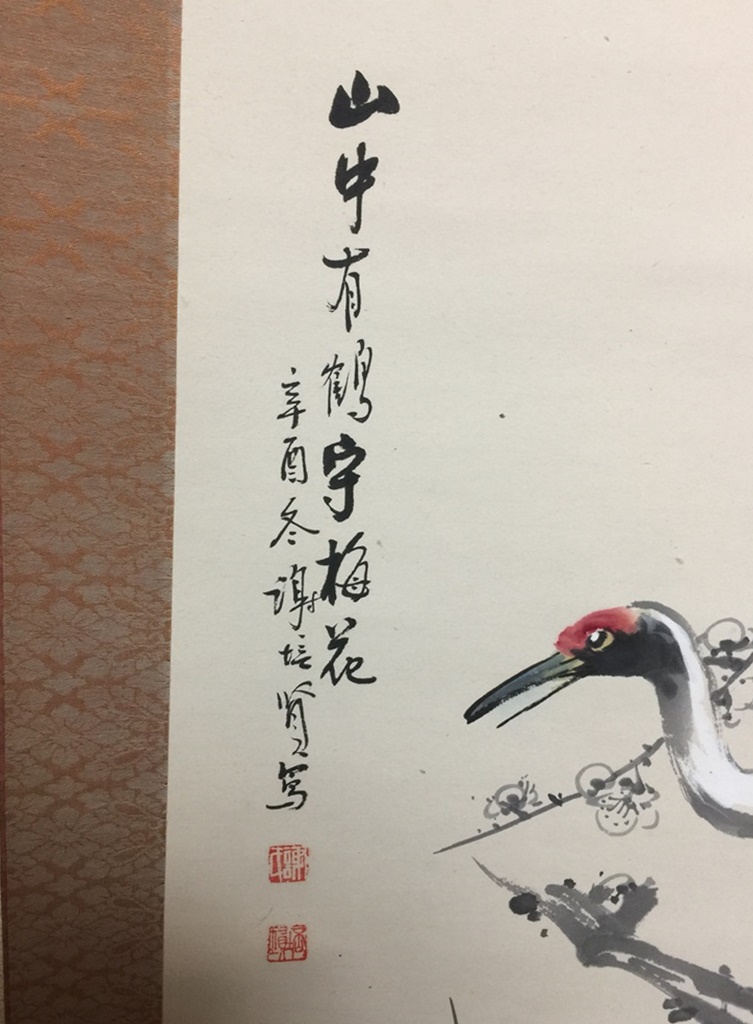 山中有鶴守梅花
辛酉冬謝培賢寫